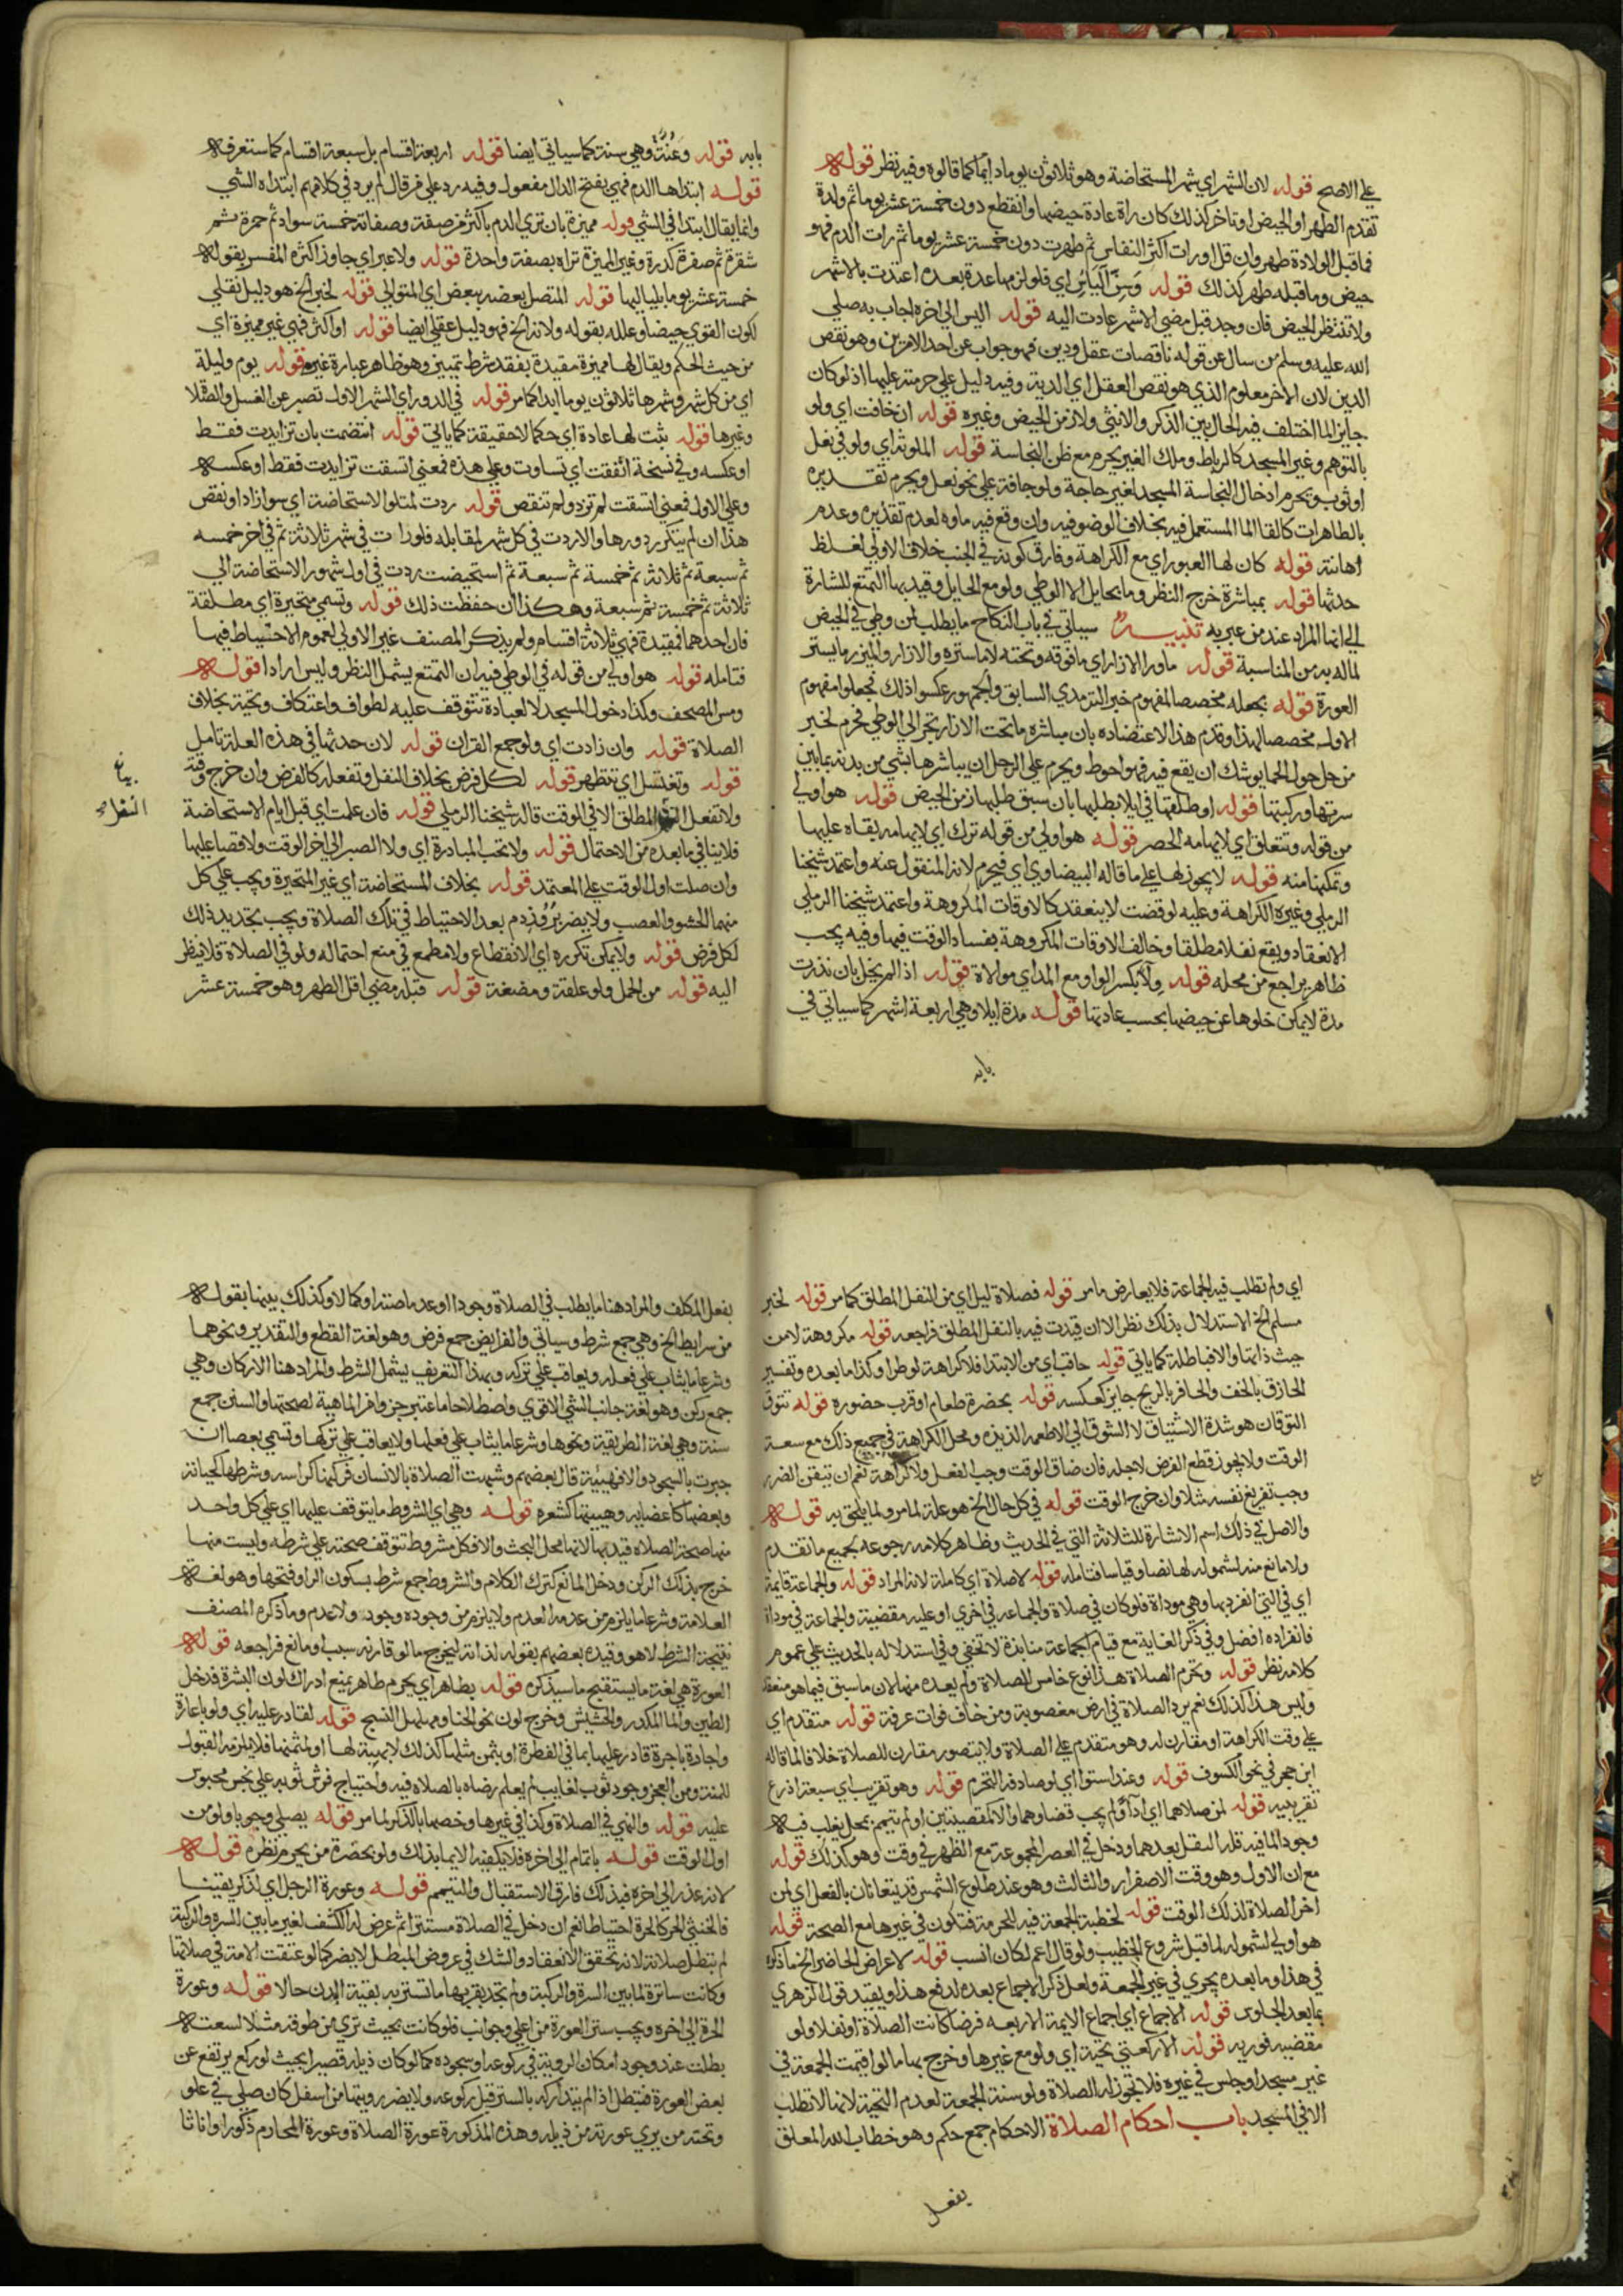 علي الاصح قوله لان الشهر اي شهر المستحاضة وهو ثلاثون يوما دايما كما قالوه وفيه نظر قوله
تقدم الطهر او الحيض او تاخر كذلك كان راة عادة حيضها وانقطع دون خمسة عشر يوما ثم ولدة
فما قبل الولادة طهر وان قل او رات اكثر النفاس ثم طهرت دون خمسة عشر يوما ثم رات الدم فهو
حيض وما قبله طهر كذلك قوله وسن الياس اي فلو لزمها عدة بعده اعتدت بالاشهر
ولا تنتظر الحيض فان وجد قبل مضي الاشهر عادت اليه قوله اليس الي اخره اجاب به صلي
الله عليه وسلم من سال عن قوله ناقصات عقل ودين فهو جواب عن احد الامرين وهو نقص
الدين لان الاخر معلوم الذي هو نقص العقل اي الدية وفيه دليل علي حرمته عليها اذ لو كان
جايزا لما اختلف فيه الحال بين الذكر والانثي ولا زمن الحيض وغيره قوله ان خافت اي ولو
بالتوهم وغير المسجد كالرباط وملك الغير يحرم مع ظن النجاسة قوله الملوثة اي ولو في نعل
او ثوب ويحرم ادخال النجاسة المسجد لغير حاجة ولو جافة علي نحو نعل ويحرم تقذيره
بالطاهرات كالقا الما المستعمل فيه بخلاف الوضو فيه وان وقع فيه ماوه لعدم تقذيره وعدم
اهانته قوله كان لها العبور اي مع الكراهة وفارق كونه في الجنب خلاف الاولي لغلظ
حدثها قوله بمباشرة خرج النظر وما بحايل الا الوطي ولو مع الحايل وقيد بها التمتع للشارة
الي انها المراد عند من عبر به تنبيه سياتي في باب النكاح ما يطلب لمن وطي في الحيض
لما له به من المناسبة قوله ما ورا الازار اي ما فوقه وتحته لا ما ستره والازار والميزر ما يستر
العورة قوله بجعله مخصصا لمفهوم خبر الترمذي السابق والجمهور عكسوا ذلك فجعلوا مفهوم
الاول مخصصا لهذا وقدم هذا الاعتضاده بان مباشرة ما تحت الازار تجر الي الوطي فحرم لخبر
من حام حول الحما يوشك ان يقع فيه فهو احوط ويحرم علي الرجل ان يباشرها بشي من بدنه بما بين
سرتها وركبتها قوله او طلقها في ايلا بطلبها بان سبق طلبها زمن الحيض قوله هو اولي
من قوله وتتعلق اي لايهامه الحصر قوله هو اولي من قوله ترك اي لايهامه بقاه عليها
وتمكنها منه قوله لا يجوز لها علي ما قاله البيضاوي اي فيحرم لانه المنقول عنه واعتمد شيخنا
الرملي وغيره الكراهة وعليه لو قضت لا ينعقد كالاوقات المكروهة واعتمد شيخنا الرملي
الانعقاد ويقع نفلا مطلقا وخالف الاوقات المكروهة بفساد الوقت فيها وفيه يجب
ظاهر يراجع من محله قوله ولا بكسر الواو مع المد اي موالاة قوله اذا لم يخل بان نذرت
مدة لا يمكن خلوها عن حيضها بحسب عادتها قوله مدة ايلا وهي اربعة اشهر كما سياتي في
بابه
بابه قوله وعنة وهي سنة كما سياتي ايضا قوله اربعة اقسام بل سبعة اقسام كما ستعرفه
قوله ابتداها الدم فهي بفتح الدال مفعول وفيه رد علي من قال لم يرد في كلامهم ابتداه الشي
وانما يقال ابتدا في الشي قوله مميزة بان تري الدم باكثر من صفة وصفاته خمسة سواد ثم حمرة ثم
شقرة ثم صفرة ثم كدرة وغير المميزة تراه بصفة واحدة قوله ولا عبر اي جاوز اكثره المفسر بقوله
خمسة عشر يوما بلياليها قوله المتصل بعضه ببعض اي المتوالي قوله لخبر الخ هو دليل نقلي
لكون القوي حيضا وعلله بقوله ولانه الخ فهو دليل عقلي ايضا قوله او اكثر فهي غير مميزة اي
من حيث الحكم ويقال لها مميزة مقيدة بفقد شرط تمييز وهو ظاهر عبارة غيره قوله يوم وليلة
اي من كل شهر وشهرها ثلاثون يوما ابدا كما مر قوله في الدور اي الشهر الاول تصبر عن الغسل والصلا
وغيرها قوله يثبت لها عادة اي حكما لا حقيقة كما ياتي قوله انتضمت بان تزايدت فقط
او عكسه وفي نسخة اتفقت اي تساوت وعلي هذه فمعني اتسقت تزايدت فقط او عكسه
وعلي الاول فمعني اتسقت لم تزد ولم تنقص قوله ردت لمتلو الاستحاضة اي سوا زاد او نقص
هذا ان لم يتكرر دورها والا ردت في كل شهر لمقابله فلو رات في شهر ثلاثة ثم في اخر خمسه
ثم سبعة ثم ثلاثة ثم خمسة ثم سبعة ثم استحيضت ردت في اول شهور الاستحاضة الي
ثلاثة ثم خمسة ثم سبعة وهكذا ان حفظت ذلك قوله وتسمي متحيرة اي مطلقة
فان احدهما فمقيدة فهي ثلاثة اقسام ولم يذكر المصنف غير الاولي لعموم الاحتياط فيها
فتامله قوله هو اولي من قوله في الوطي فيه ان التمتع يشمل النظر وليس مرادا قوله
ومس المصحف وكذا دخول المسجد لا لعبادة تتوقف عليه لطواف واعتكاف وتحية بخلاف
الصلاة قوله وان زادت اي ولو جمع القران قوله لان حدثها في هذه العلة تامل
قوله وتغتسل اي تتطهر قوله لكل فرض بخلاف النفل وتفعله كالفرض وان خرج وقته
ولا تفعل المطلق الا في الوقت قاله شيخنا الرملي قوله فان علمت اي قبل ايام الاستحاضة
فلا ينافي ما بعده من الاحتمال قوله ولا تجب المبادرة اي ولا الصبر الي اخر الوقت ولا قضا عليها
وان صلت اول الوقت علي المعتمد قوله بخلاف المستحاضة اي غير المتحيرة ويجب علي كل
منهما الحشو والعصب ولا يضر بروز دم بعد الاحتياط في تلك الصلاة ويجب تجديد ذلك
لكل فرض قوله ولا يمكن تكرره اي الانقطاع ولا مطمع في منع احتماله ولو في الصلاة فلا ينظر
اليه قوله من الحمل ولو علقة ومضغة قوله قبله مضي اقل الطهر وهو خمسة عشر
اي ولم تطلب فيه الجماعة فلا يعارض ما مر قوله فصلاة ليل اي من النفل المطلق كما مر قوله لخبر
مسلم الخ الاستدلال بذلك نظر الا ان قيدت فيه بالنفل المطلق فراجعه قوله مكروهة لا من
حيث ذاتها والا فباطلة كما ياتي قوله حاقب اي من الابتدا فلا كراهة لو طرا وكذا ما بعده وتفسير
الحازق بالخف والحاقر بالريح جايز كعكسه قوله بحضرة طعام او قرب حضوره قوله تتوق
التوقان هو شدة الاشتياق لا الشوق الي الاطعمة اللذيذة ومحل الكراهة في جميع ذلك مع سعة
الوقت ولا يجوز قطع الفرض لاجله فان ضاق الوقت وجب الفعل ولا كراهة نعم ان تيقن الضرر
وجب تفريغ نفسه مثلا وان خرج الوقت قوله في كل حال الخ هو علة لما مر ولما يلحق به قوله
والاصل في ذلك اسم الاشارة للثلاثة التي في الحديث وظاهر كلامه رجوعه لجميع ما تقدم
ولا مانع منه لشموله لها نصا وقياسا فتامله قوله لا صلاة اي كاملة لانه المراد قوله والجماعة قايمة
اي في التي انفرد بها وهي موداة فلو كان في صلاة والجماعة في اخري او عليه مقضية والجماعة في موداة
فانفراده افضل وفي ذكر الغاية مع قيام الجماعة منابذة لا تخفي وفي استدلاله بالحديث علي عموم
كلامه نظر قوله وتحرم الصلاة هذا نوع خامس للصلاة ولم يعده منها لان ما سبق فيما هو منعقد
وليس هذا كذلك نعم يرد الصلاة في ارض مغصوبة ومن خاف فوات عرفة قوله متقدم اي
علي وقت الكراهة او مقارن له وهو متقدم علي الصلاة ولا يتصور مقارن للصلاة خلافا لما قاله
ابن حجر في نحو الكسوف قوله وعند استوا اي لو صادفه التحرم قوله وهو تقريب اي سبعة اذرع
تقريبيه قوله لمن صلاهما اي اداآ ولم يجب قضاوهما والا كمقضيتين او لم تيمم بمحل يغلب فيه
وجود الما فيه فله النفل بعدهما ودخل في العصر المجموعة مع الظهر في وقت وهو كذلك قوله
مع ان الاول وهو وقت الاصفرار والثالث وهو عند طلوع الشمس قد يتعاقبان بالفعل اي لمن
اخر الصلاة لذلك الوقت قوله لخطبة الجمعة فيه الحرمة فتكون في غيرها مع الصحة قوله
هو اولي لشموله لما قبل شروع الخطيب ولو قال اعم لكان انسب قوله لاعراض الحاضر الخ ما ذكره
في هذا وما بعده يجري في غير الجمعة ولعل ذكر الاجماع بعده لدفع هذا ويقيد قول الزهري
بما بعد الجلوس قوله الاجماع اي اجماع الايمة الاربعه فرضا كانت الصلاة او نفلا ولو
مقضيه فوريه قوله الا ركعتي تحية اي ولو مع غيرها وخرج بها ما لو اقيمت الجمعة في
غير مسجد او جلس في غيره فلا يجوز له الصلاة ولو سنة الجمعة لعدم التحية لانها لا تطلب
الا في المسجد باب احكام الصلاة الاحكام جمع حكم وهو خطاب الله المعلق
بفعل
بفعل المكلف والمراد هنا ما يطلب في الصلاة وجودا او عدما صحة او كمالا وكذلك بينها بقوله
من شرايط الخ وهي جمع شرط وسياتي والفرايض جمع فرض وهو لغة القطع والتقدير ونحوهما
وشرعا ما يثاب علي فعله ويعاقب علي تركه وبهذا التعريف يشمل الشرط والمراد هنا الاركان وهي
جمع ركن وهو لغة جانب الشي الاقوي واصطلاحا ما اعتبر جزوا من الماهية لصحتها والسنن جمع
سنة وهي لغة الطريقة ونحوها وشرعا ما يثاب علي فعلها ولا يعاقب علي تركها وتسمي بعضا ان
جبرت بالسجود والا فهيئة قال بعضهم وشبهت الصلاة بالانسان فركنها كراسه وشرطها كحياته
وبعضها كاعضايه وهيئتها كشعره قوله وهي اي الشروط ما يتوقف عليها اي علي كل واحد
منها صحة الصلاه قيد بها لانها محل البحث والا فكل مشروط تتوقف صحته علي شرطه وليست منها
خرج بذلك الركن ودخل المانع كترك الكلام والشروط جمع شرط بسكون الرا وفتحها وهو لغة
العلامة وشرعا ما يلزم من عدمه العدم ولا يلزم من وجوده وجود ولا عدم وما ذكره المصنف
نتيجة الشرط لا هو وقيده بعضهم بقوله لذاته ليخرج ما لو قارنه سبب او مانع فراجعه قوله
العورة هي لغة ما يستقبح ما سيذكره قوله بطاهر اي بجرم طاهر يمنع ادراك لون البشرة فدخل
الطين والما المكدر والحشيش وخرج لون نحو الحنا ومهلهل النسج قوله لقادر عليه اي ولو باعارة
واجارة باجرة قادر عليها بما في الفطرة او بثمن مثلها كذلك لا بهبة لها او لثمنها فلا يلزمه القبول
للمنة ومن العجز وجود ثوب لغايب لم يعلم رضاه بالصلاه فيه واحتياج فرش ثوبه علي نجس محبوس
عليه قوله والنهي في الصلاة وكذا في غيرها وخصها بالذكر لما مر قوله يصلي وجوبا ولو من
اول الوقت قوله باتمام الي اخره فلا يكفيه الايما بذلك ولو بحضرة من يحرم نظره قوله
لانه عذر الي اخره فبذلك فارق الاستقبال والتيمم قوله وعورة الرجل اي الذكر يقينا
فالخنثي الحر كالحرة احتياطا نعم ان دخل في الصلاة مستترا ثم عرض له الكشف لغير ما بين السره والركبة
لم تبطل صلاته لانه تحقق الانعقاد والشك في عروض المبطل لا يضر كما لو عتقت الامة في صلاتها
وكانت ساترة لما بين السرة والركبة ولم تجد بقربها ما تستر به بقية البدن حالا قوله وعورة
الحرة الي اخره ويجب ستر العورة من اعلي وجوانب فلو كانت بحيث تري من طوقه مثلا لسعته
بطلت عند وجود امكان الرويه في ركوعه او سجوده كما لو كان ذيله قصيرا بحيث لو ركع يرتفع عن
بعض العورة فتبطل اذا لم يتداركه بالستر قبل ركوعه ولا يضر رويتها من اسفل كان صلي في علو
وتحته من يري عورته من ذيله وهذه المذكورة عورة الصلاة وعورة المحارم ذكورا واناثا